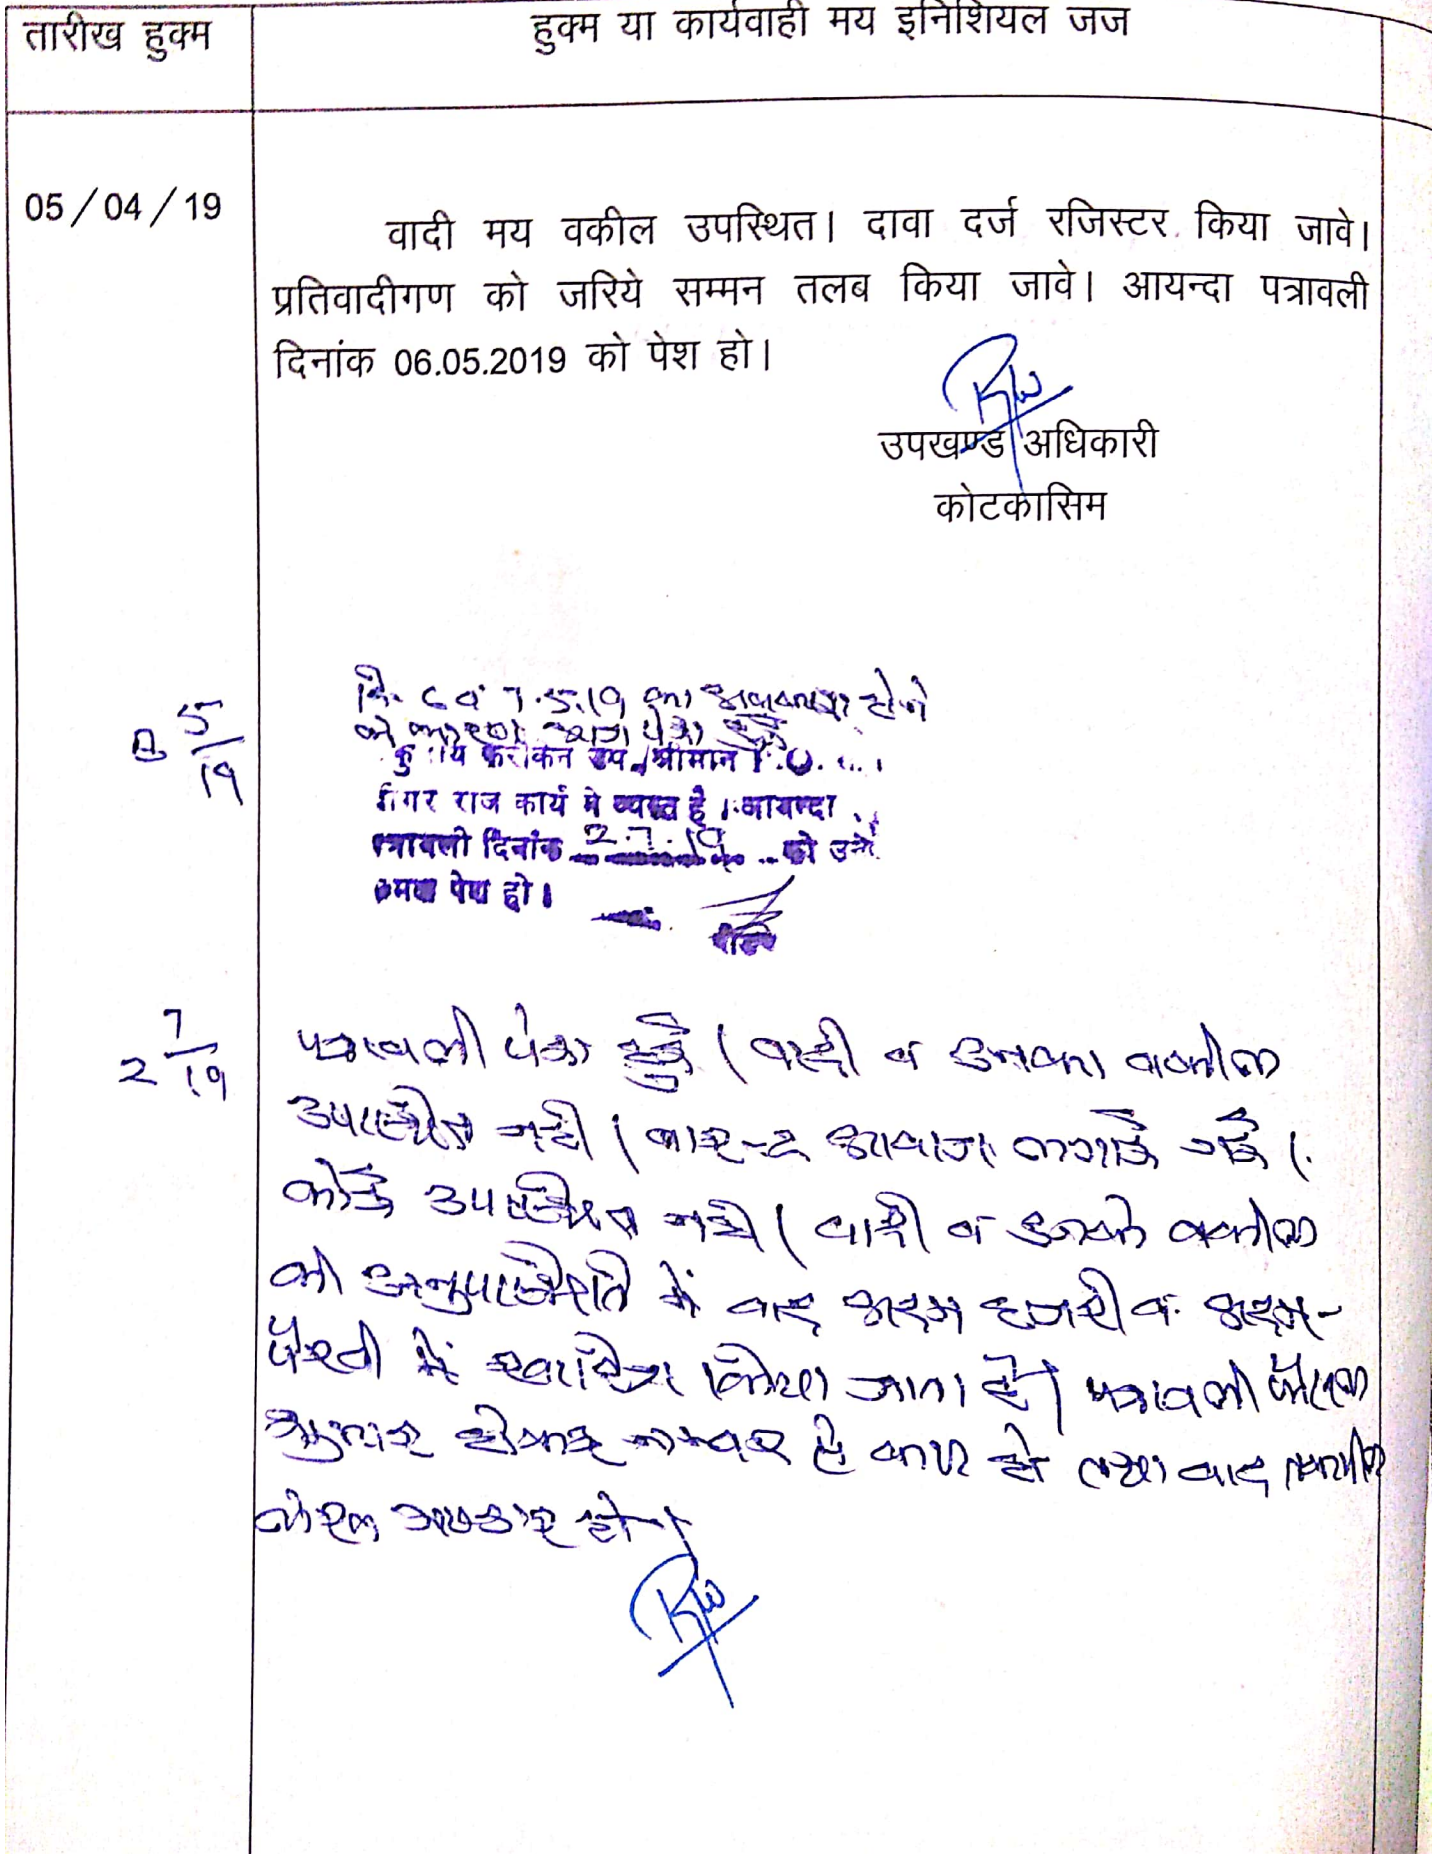 तारीख हुक्म
हुक्म या कार्यवाही मय इनिशियल जज
05/04/19
वादी मय वकील उपस्थित। दावा दर्ज रजिस्टर किया जावे।
प्रतिवादीगण को जरिये सम्मन तलब किया जावे। आयन्दा पत्रावली
दिनांक 06.05.2019 को पेश हो।
उपखण्ड अधिकारी
कोटकासिम
8 5/19
दि. 6 व 7.5.19 का अवकाश होने
के कारण आज पेश हुई
श्रीमान P.O.
राज कार्य में व्यस्त है। आयन्दा
पत्रावली दिनांक 2.7.19 को
पेश हो।
2 7/19
पत्रावली पेश हुई। वादी व उनका वकील
उपस्थित नही। बार-2 आवाज लगाई गई।
कोई उपस्थित नही। वादी व उनके वकील
की अनुपस्थिति में वाद अदम हाजरी व अदम-
पैरवी में खारिज किया जाता है। पत्रावली फैसल
शुमार होकर नम्बर से कम हो तथा बाद
दफ्तर हो।